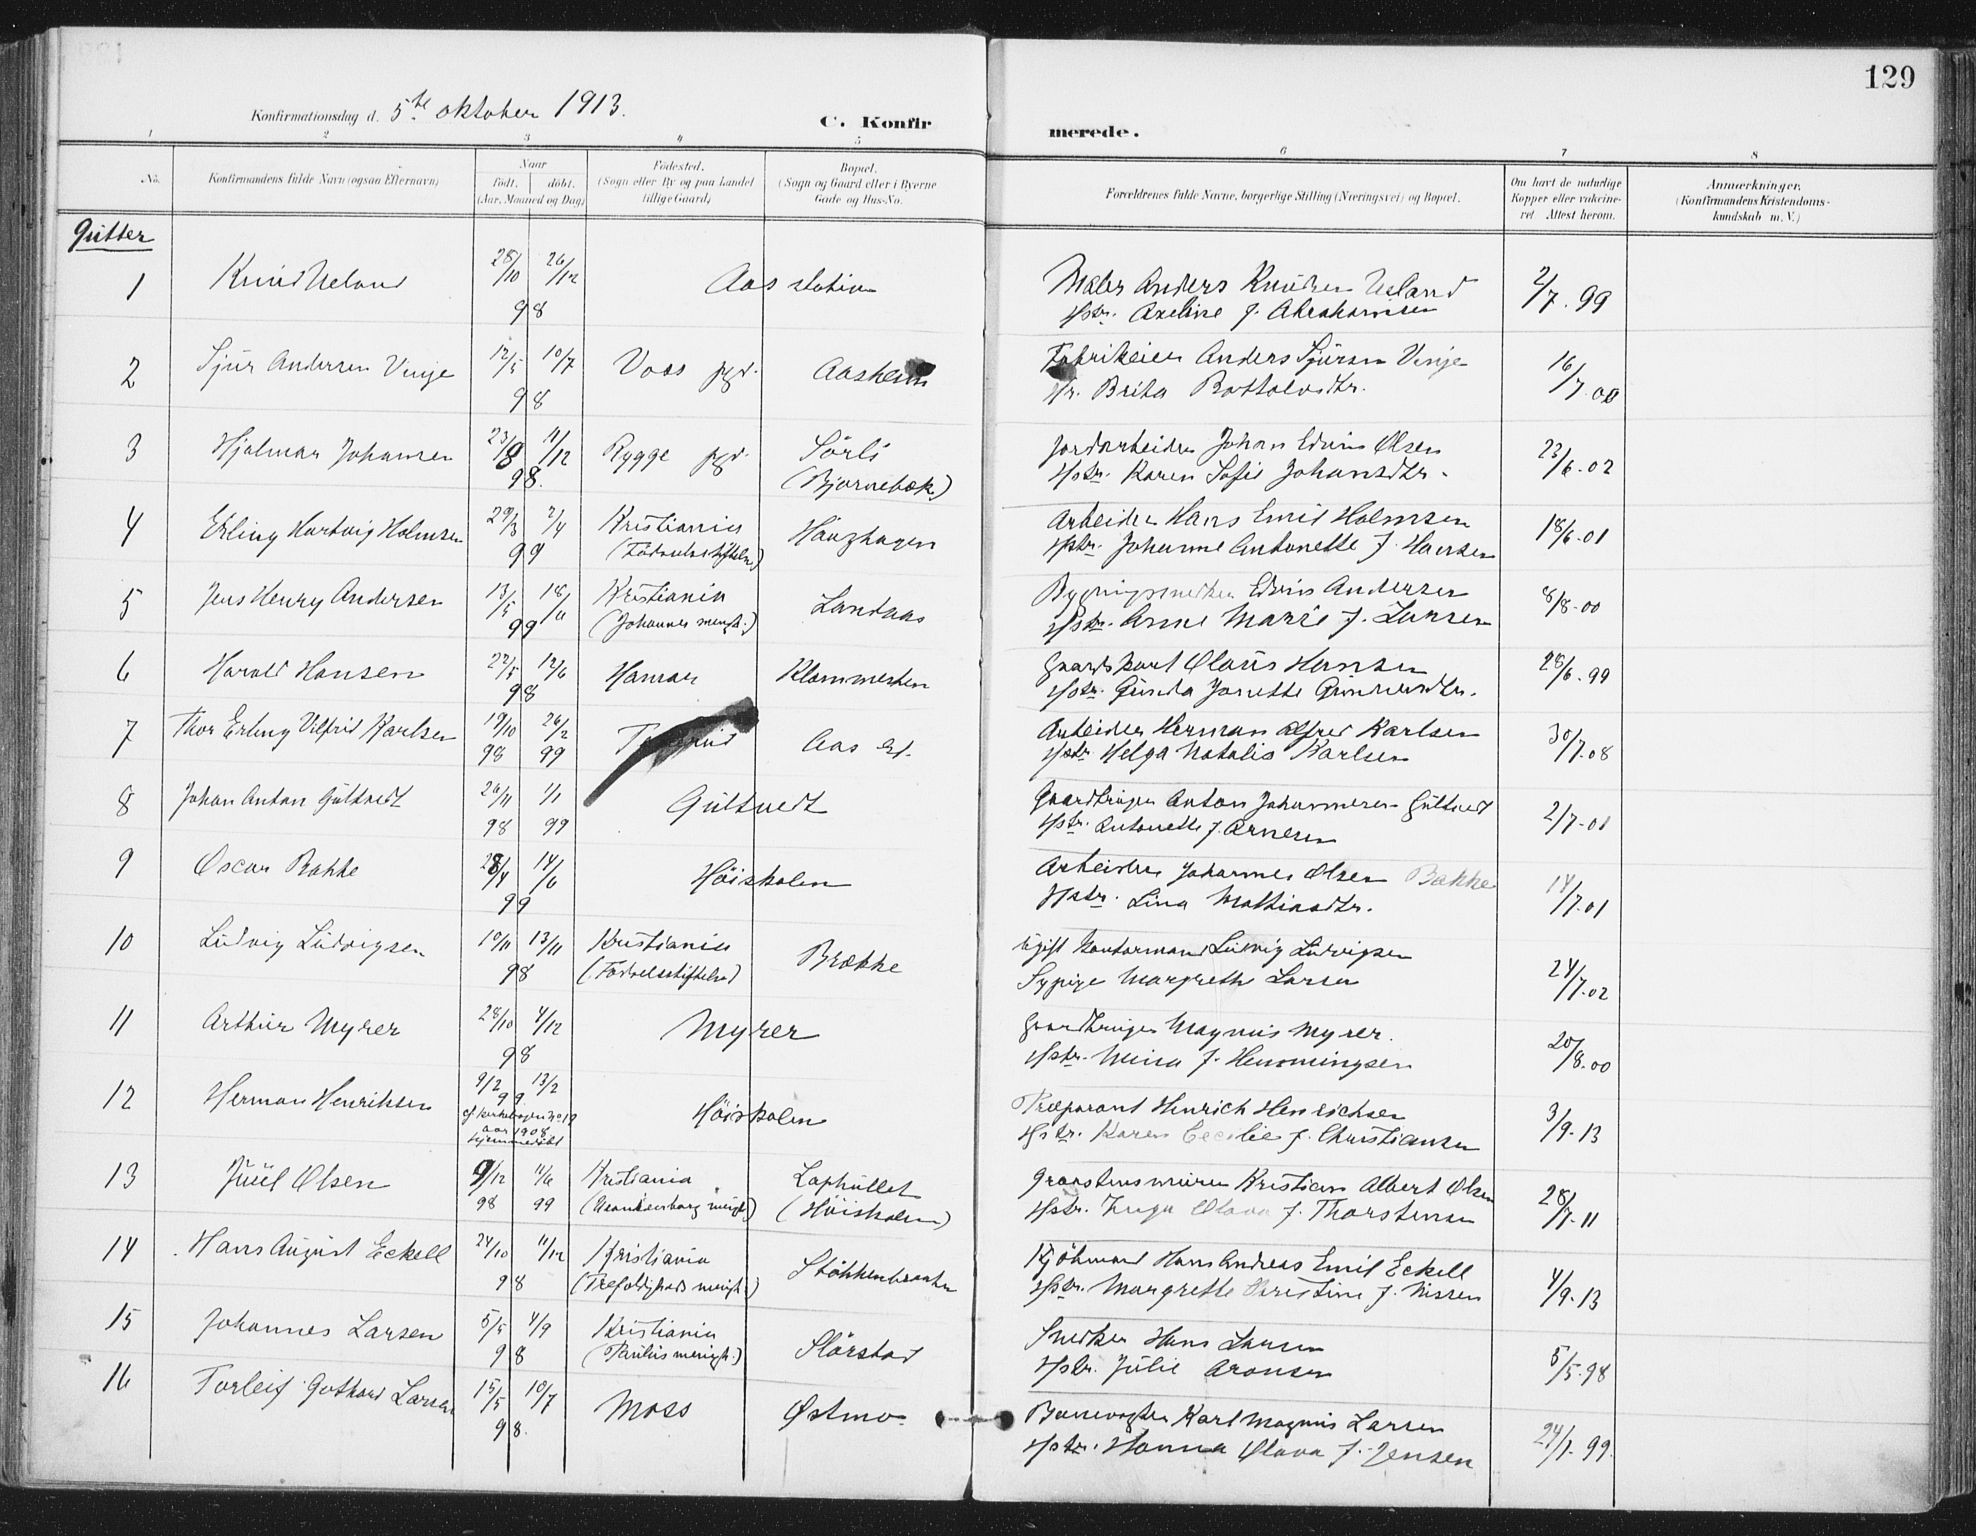 129
Konfirmationsdag d. 5te oktober 1913.
C. Konfirmerede.
1 2 3 4 5 6 7 8
No.
Konfirmandens fulde Navn (ogsaa Efternavn)
Naar
født. døbt.
(Aar, Maaned og Dag)
Fødested.
(Sogn eller By og paa Landet
tillige Gaard)
Bopæl.
(Sogn og Gaard eller i Byerne
Gade og Hus-No.
Forældrenes fulde Navne, borgerlige Stilling (Næringsvei) og Bopæl.
Om havt de naturlige
Kopper eller vakcine-
ret. Attest herom.
Anmærkninger.
(Konfirmandens Kristendoms-
kundskab m. V.)
Gutter
1 Knud Ueland 28/10 26/12 98 Aas station Maler Anders Knudsen Ueland 2/7. 99
Hstr. Axeline f. Abrahamsen
2 Sjur Andersen Vinje 12/5 10/7 98 Voss pgd. Aasheim Fabrikeier Anders Sjursen Vinje 16/7.00
Hr. Brita Bottolvsdtr.
3 Hjalmar Johansen 23/9 11/12 98. Rygge pgd. Sørli (Bjørnebek) Jordarbeider Johan Edvin Olsen 23/6-02
Hstr. Karen Sofie Johansdtr.
4 Erling Hartvig Holmsen 29/3 2/4 99 Kristiania (Fødselsstiftelsen) Haughagen Arbeider Hans Emil Holmsen 18/6-01
Hstr. Johanne Antonette f. Hansen
5 Jens Henry Andersen 13/5 18/11 99 Kristiania (Johannes menigh.) Landaas Bygningssnedker Edvin Andersen 8/8-00
Hstr. Anne Marie f. Larsen
6 Harald Hansen 22/5 12/6 98 Hamar Klommesten Gaardskarl Olaus Hansen 28/6-99
Hstr. Gunda Jonette Gundersdtr.
7 Thor Erling Vilfrid Karlsen 19/10 98 26/2 99 Aas st. Arbeider Herman Alfred Karlsen 30/7.08
Hstr. Helga Natalie Karlsen
8 Johan Anton Gultvedt 26/11 98 1/1 99 Gultvedt Gaardbruger Anton Johannesen Gultvedt 2/7-01
Hstr. Antonette f. Arnesen
9 Oscar Bakke 28/4 14/6 99 Høiskolen Arbeider Johannes Olsen Bakke 14/7.01
Hstr. Lina Mathiasdtr.
10 Ludvig Ludvigsen 10/11 13/11 98 Kristiania (Fødselsstiftelse) Brække Ugift Kontormand Ludvig Ludvigsen 24/7.02
Sypige Margrethe Larsen
11 Arthur Myrer 28/10 4/12 98 Myrer Gaardbruger Magnus Myrer. 20/8.00
Hstr. Mina f. Hemmingsen
12 Herman Henriksen 9/2 13/2 99. cf kirkebogen No 19 aar 1908 hjemmedøbt Høiskolen Præparant Henrich Henrichsen 3/9-13
Hstr. Karen Cecilie f. Christiansen
13 Juul Olsen 9/12 98 11/6 99 Kristiania (Uranienborg menigh) Laphullet (Høiskolen) Graastensmurer Kristian Albert Olsen 28/7-11
Hstr. Inga Olava f. Thorstensen
14 Hans August Eckell 24/10 11/12 98 Kristiania (Trefoldigheds menigh.) Støkkenbraaten Kjøbmand Hans Andreas Emil Eckell 4/9-13
Hstr. Margrethe Kristine f. Nissen
15 Johannes Larsen 5/5 4/9 98 Kristiania (Paulus menigh.) Slørstad Snedker Hans Larsen 5/5-98
Hstr. Julie Aronsen
16 Torleif Gothard Larsen 15/5 10/7 98. Moss Østmo Banevogter Karl Magnus Larsen 24/7-99.
Hstr. Hanna Olava f. Jensen